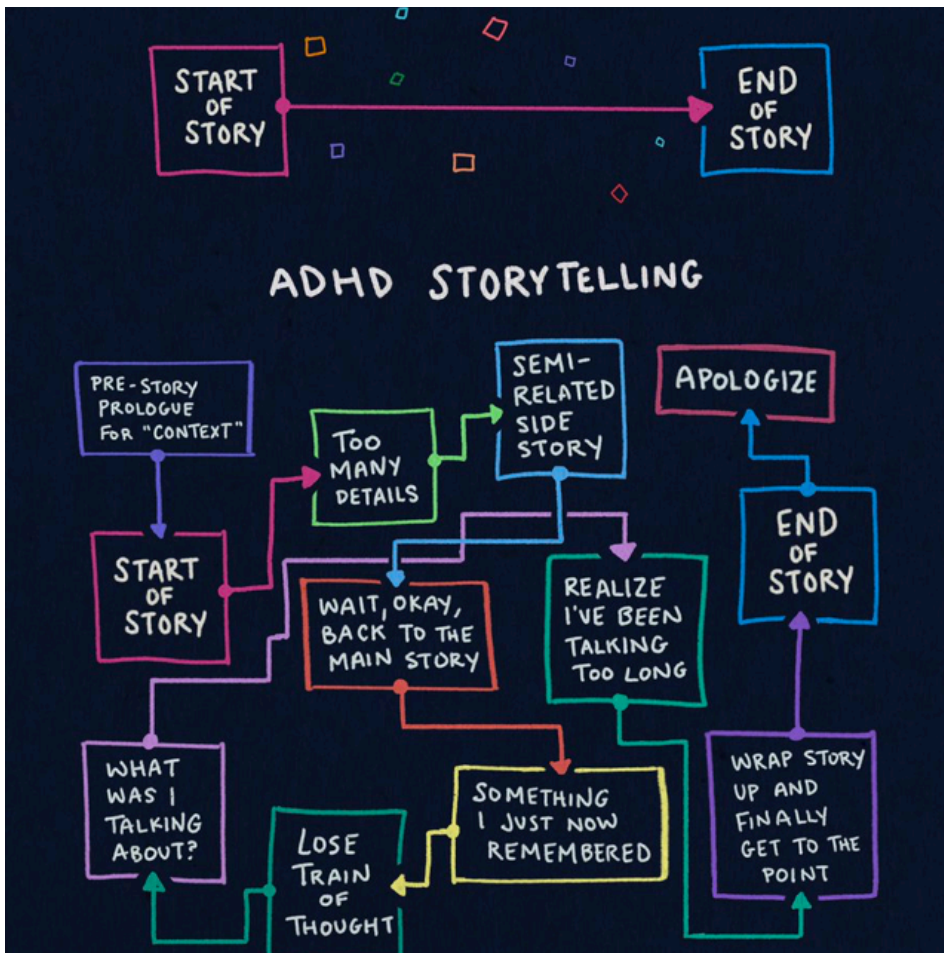 START
OF
STORY
END
OF
STORY
ADHD STORYTELLING
PRE-STORY
PROLOGUE
FOR "CONTEXT"
START
OF
STORY
TOO
MANY
DETAILS
SEMI-
RELATED
SIDE
STORY
WAIT, OKAY,
BACK TO THE
MAIN STORY
SOMETHING
I JUST NOW
REMEMBERED
LOSE
TRAIN
OF
THOUGHT
WHAT
WAS I
TALKING
ABOUT?
REALIZE
I'VE BEEN
TALKING
TOO LONG
WRAP STORY
UP AND
FINALLY
GET TO THE
POINT
END
OF
STORY
APOLOGIZE